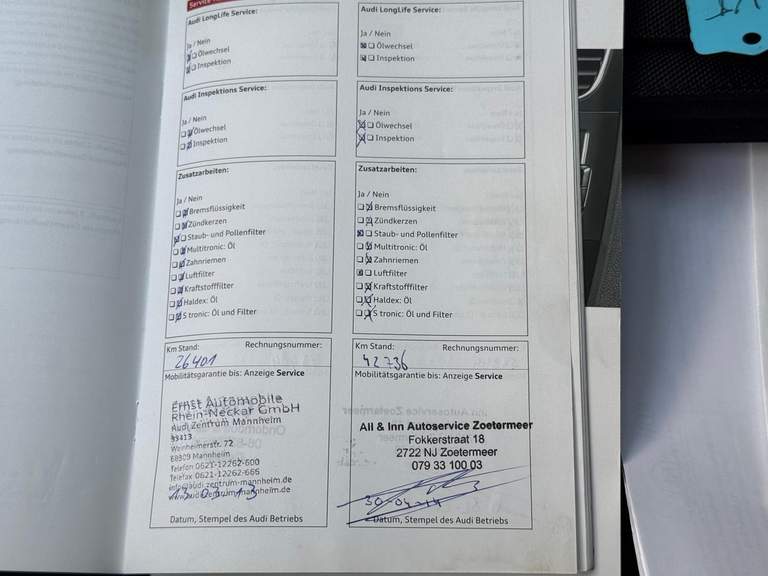 Audi LongLife Service:
Ja / Nein
Ölwechsel
Inspektion
Audi Inspektions Service:
Ja / Nein
Ölwechsel
Inspektion
Zusatzarbeiten:
Ja / Nein
Bremsflüssigkeit
Zündkerzen
Staub- und Pollenfilter
Multitronic: Öl
Zahnriemen
Luftfilter
Kraftstofffilter
Haldex: Öl
S tronic: Öl und Filter
Km Stand: Rechnungsnummer:
26401
Mobilitätsgarantie bis: Anzeige Service
Ernst Automobile
Rhein-Neckar GmbH
Audi Zentrum Mannheim
Weinheimerstr. 72
68309 Mannheim
Telefon 0621-12262-600
Telefax 0621-12262-666
info@audi.zentrum-mannheim.de
13 03 13
Datum, Stempel des Audi Betriebs
Audi LongLife Service:
Ja / Nein
Ölwechsel
Inspektion
Audi Inspektions Service:
Ja / Nein
Ölwechsel
Inspektion
Zusatzarbeiten:
Ja / Nein
Bremsflüssigkeit
Zündkerzen
Staub- und Pollenfilter
Multitronic: Öl
Zahnriemen
Luftfilter
Kraftstofffilter
Haldex: Öl
S tronic: Öl und Filter
Km Stand: Rechnungsnummer:
42736
Mobilitätsgarantie bis: Anzeige Service
All & Inn Autoservice Zoetermeer
Fokkerstraat 18
2722 NJ Zoetermeer
079 33 100 03
Datum, Stempel des Audi Betriebs